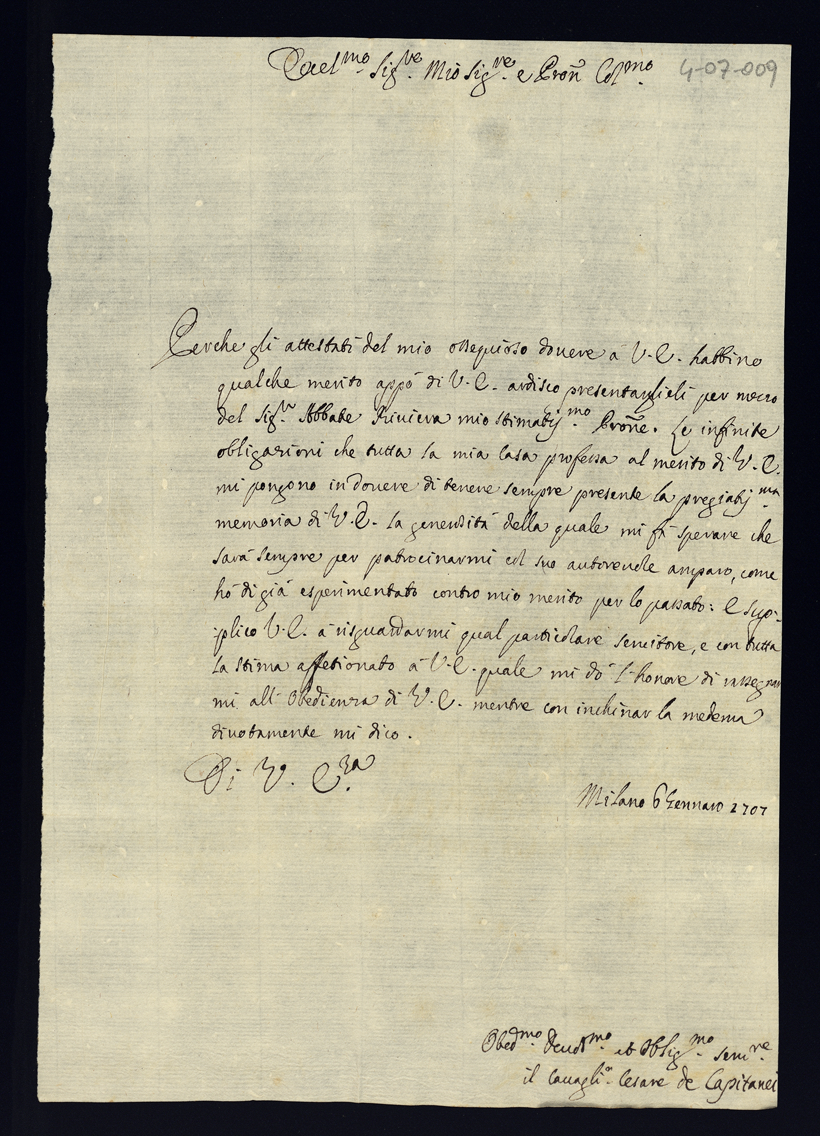 Eccel.mo Sig.re Mio Sig.re e Pron Col.mo 4-07-009
Perche gli attestati del mio ossequioso douere à V.E. habbino
qualche merito appò di V.E. ardisco presentarglieli per mezzo
del Sig.r Abbate Riuiera mio stimatiss.mo Prone. Le infinite
obligazioni che tutta la mia Casa professa al merito di V.E.
mi pongono in douere di tenere sempre presente la pregiatiss.ma
memoria di V.E. la generosità della quale mi fà sperare che
sarà sempre per patrocinarmi col suo autoreuole amparo, come
hò di già esperimentato contro mio merito per lo passato: E sup-
-plico V.E. à risguardarmi qual particolare seruitore, e con tutta
la stima affetionato à V.E. quale mi dò l'honore di rassegnar
mi all'Obedienza di V.E. mentre con inchinar la medema
diuotamente mi dico.
Di V. E.za
Milano 6 Gennaro 1707
Obed.mo Deuot.mo et Oblig.mo Seru.re
il Cauagli.r Cesare de Capitanei